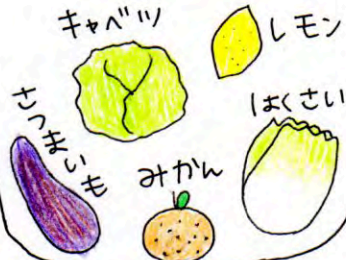 キャベツ
レモン
さつまいも
はくさい
みかん